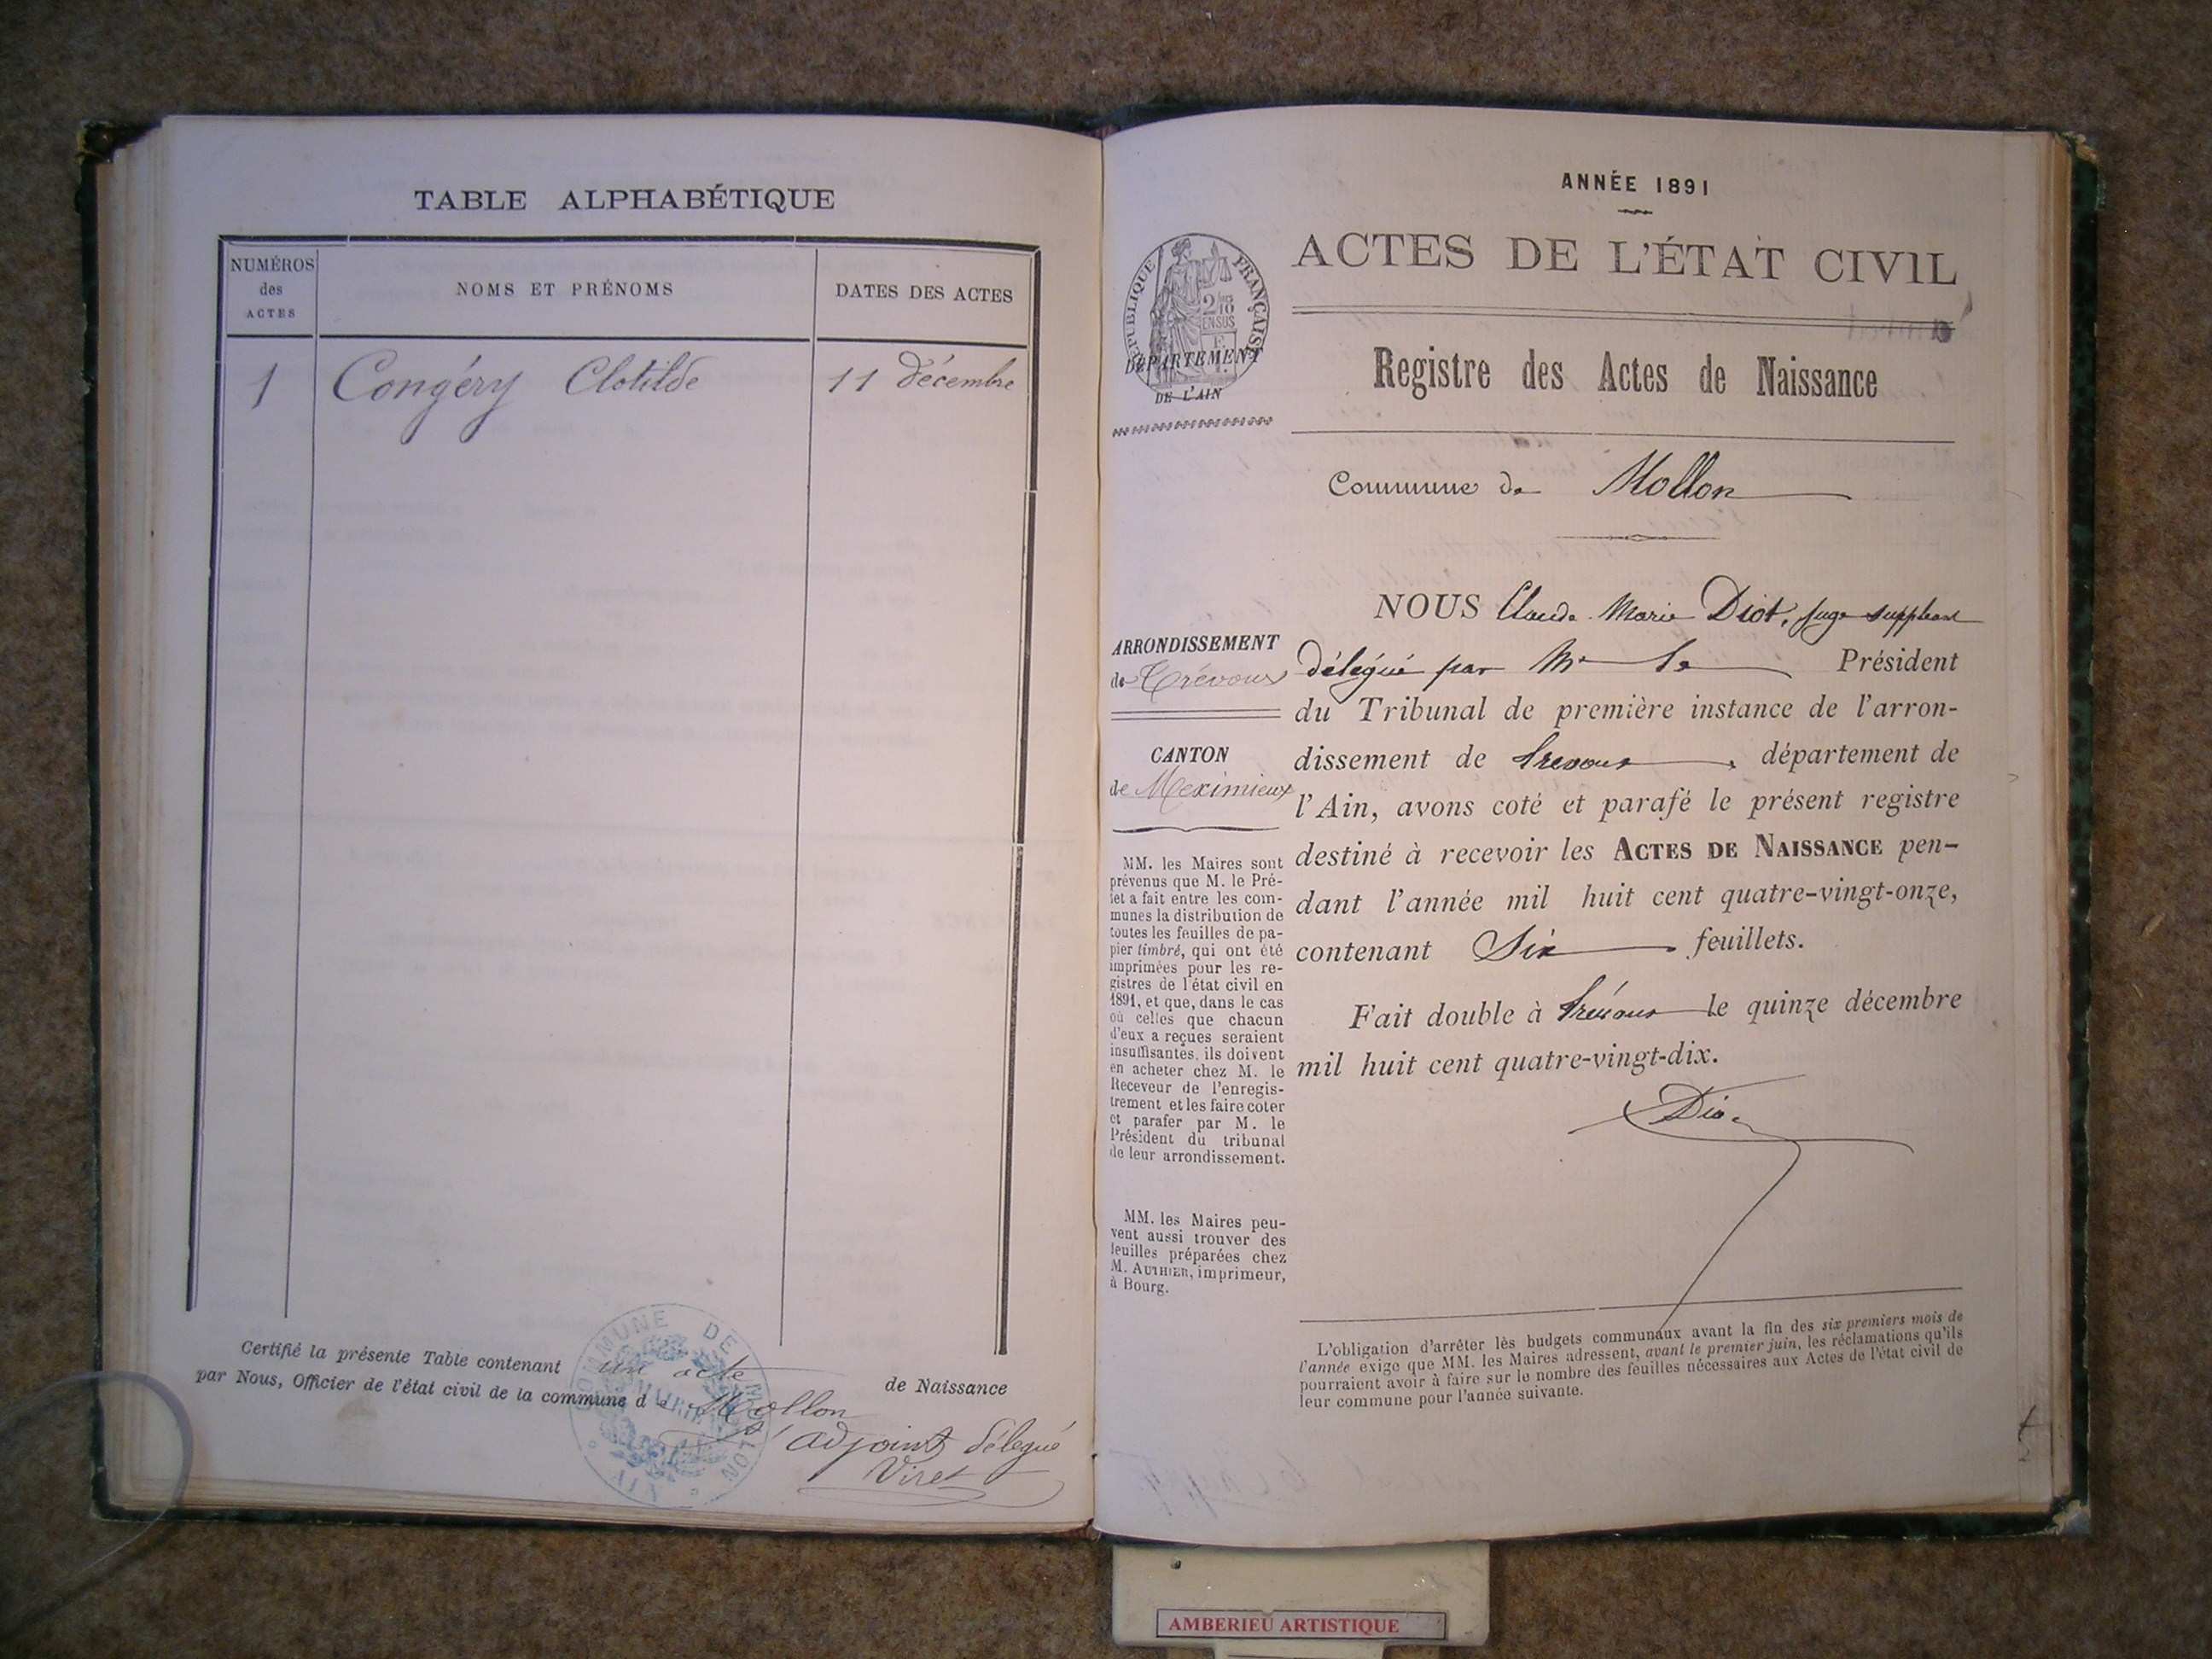 TABLE ALPHABÉTIQUE
NUMÉROS
des
ACTES
NOMS ET PRÉNOMS
DATES DES ACTES
1 Congéry Clotilde 11 décembre
Certifié la présente Table contenant un acte de Naissance
par Nous, Officier de l'état civil de la commune de Mollon
L'adjoint délégué
Viret
COMMUNE DE MOLLON
MAIRIE
AIN
ANNÉE 1891
ACTES DE L'ÉTAT CIVIL
RÉPUBLIQUE FRANÇAISE
DÉPARTEMENT
DE L'AIN
Registre des Actes de Naissance
Commune de Mollon
ARRONDISSEMENT
de Trévoux
CANTON
de Meximieux
MM. les Maires sont
prévenus que M. le Pré-
fet a fait entre les com-
munes la distribution de
toutes les feuilles de pa-
pier timbré, qui ont été
imprimées pour les re-
gistres de l'état civil en
1891, et que, dans le cas
où celles que chacun
d'eux a reçues seraient
insuffisantes, ils doivent
en acheter chez M. le
Receveur de l'enregis-
trement et les faire coter
et parafer par M. le
Président du tribunal
de leur arrondissement.
MM. les Maires peu-
vent aussi trouver des
feuilles préparées chez
M. AUTHIER, imprimeur,
à Bourg.
NOUS Claude Marie Diot, Juge suppléant
délégué par Mr le Président
du Tribunal de première instance de l'arron-
dissement de Trévoux, département de
l'Ain, avons coté et parafé le présent registre
destiné à recevoir les ACTES DE NAISSANCE pen-
dant l'année mil huit cent quatre-vingt-onze,
contenant Six feuillets.
Fait double à Trévoux le quinze décembre
mil huit cent quatre-vingt-dix.
Diot
L'obligation d'arrêter les budgets communaux avant la fin des six premiers mois de
l'année exige que MM. les Maires adressent, avant le premier juin, les réclamations qu'ils
pourraient avoir à faire sur le nombre des feuilles nécessaires aux Actes de l'état civil de
leur commune pour l'année suivante.
AMBERIEU ARTISTIQUE